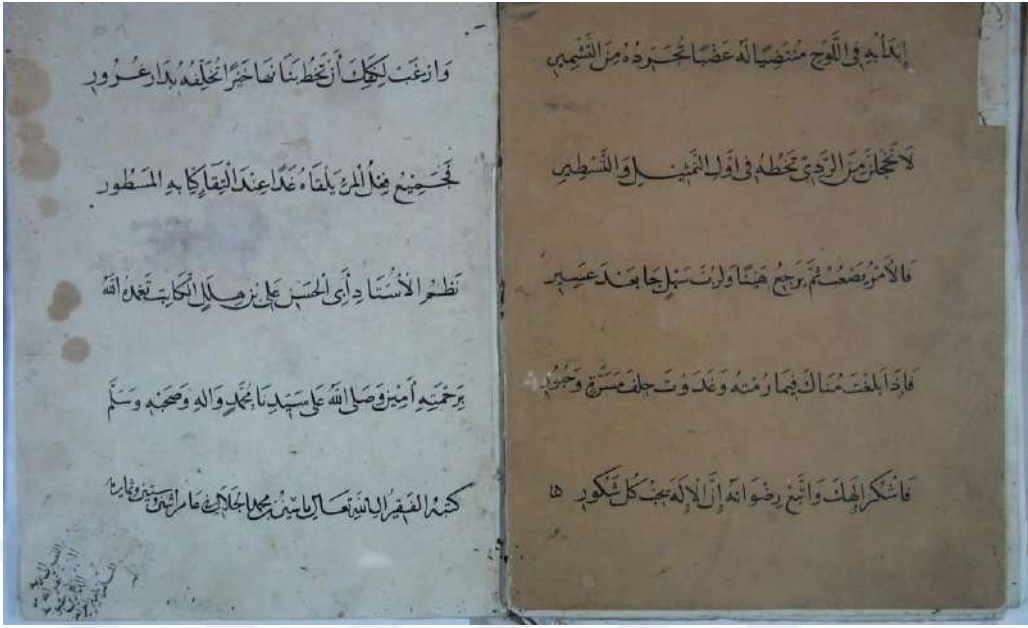 إبدأ به في اللوح منتضيا له عضبا تجرده من التشمير
لا تخجلن من الردي تخطه في أول التمثيل والتسطير
فالأمر يصعب ثم يرجع هينا ولرب سهل جا بعد عسير
فإذا بلغت مناك فيما رمته وغدوت حلف مسرة وحبور
فاشكر إلهك واتبع رضوانه إن الإله يحب كل شكور
وارغب لكفك أن تخط بنانها خيرا تخلفه بدار غرور
فجميع فعل المرء يلقاه غدا عند التقاء كتابه المسطور
نظم الأستاد أبي الحسن علي بن هلال الكاتب تغمده الله
برحمته أمين وصلى الله على سيدنا محمد واله وصحبه وسلم
كتبه الفقير الى الله تعالى ياسين بن محمد الجلالي عام اثنين وستين وثمانمائة